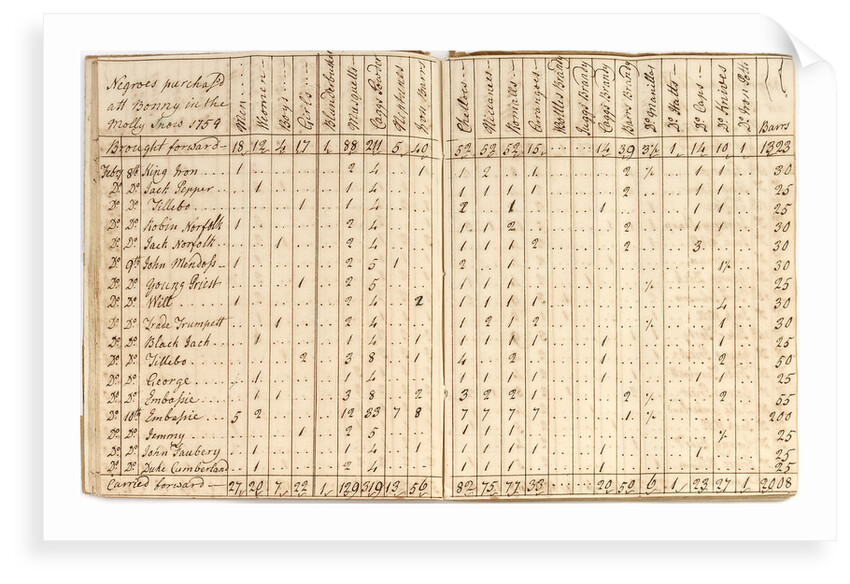 Negroes purchas'd
att Bonny in the
Molly Snow 1759
Men Women Boys Girls Blunderbuss Musquetts Caggs Powder Neptunes Iron Barrs Chelloes Nicanees Romalls Carangoes Bottles Brandy Juggs Brandy Caggs Brandy Barrs Brandy Do. Manillas Do. Hatts Do. Caps Do. Knives Do. Iron Pots Barrs
Brought forward 18 12 4 17 1 88 211 5 40 52 52 52 15 14 39 1 14 10 1 1323
Febry 8th King Iron 1 2 4 1 1 2 1 2 1 1 30
Do. Do. Jack Pepper 1 1 4 1 1 1 1 2 1 1 25
Do. Do. Tillebo 1 1 4 2 1 1 1 1 25
Do. Do. Robin Norfolk 1 2 4 1 1 2 2 1 1 30
Do. Do. Jack Norfolk 1 2 4 1 1 1 2 2 3 30
Do. 9th John Mendoss 1 2 5 1 2 1 30
Do. Do. Young Priest 1 2 5 1 1 1 1 25
Do. Do. Will 1 2 4 2 1 1 1 1 4 30
Do. Do. Trade Trumpett 1 2 4 1 2 1 2 1 30
Do. Do. Black Jack 1 1 4 1 1 1 1 1 1 1 25
Do. Do. Tillebo 2 3 8 1 4 2 1 2 50
Do. Do. George 1 1 4 1 1 1 1 1 1 1 25
Do. Do. Embassie 1 1 3 8 2 3 2 2 1 2 2 55
Do. 10th Embassie 5 2 12 33 7 8 7 7 7 7 1 200
Do. Do. Jemmy 1 2 5 1 1 1 25
Do. Do. John Taubery 1 1 4 1 1 1 1 1 1 25
Do. Do. Duke Cumberland 1 2 4 1 1 1 1 1 25
Carried forward 27 20 7 22 1 129 319 13 56 82 75 77 33 20 50 6 1 23 27 1 2008